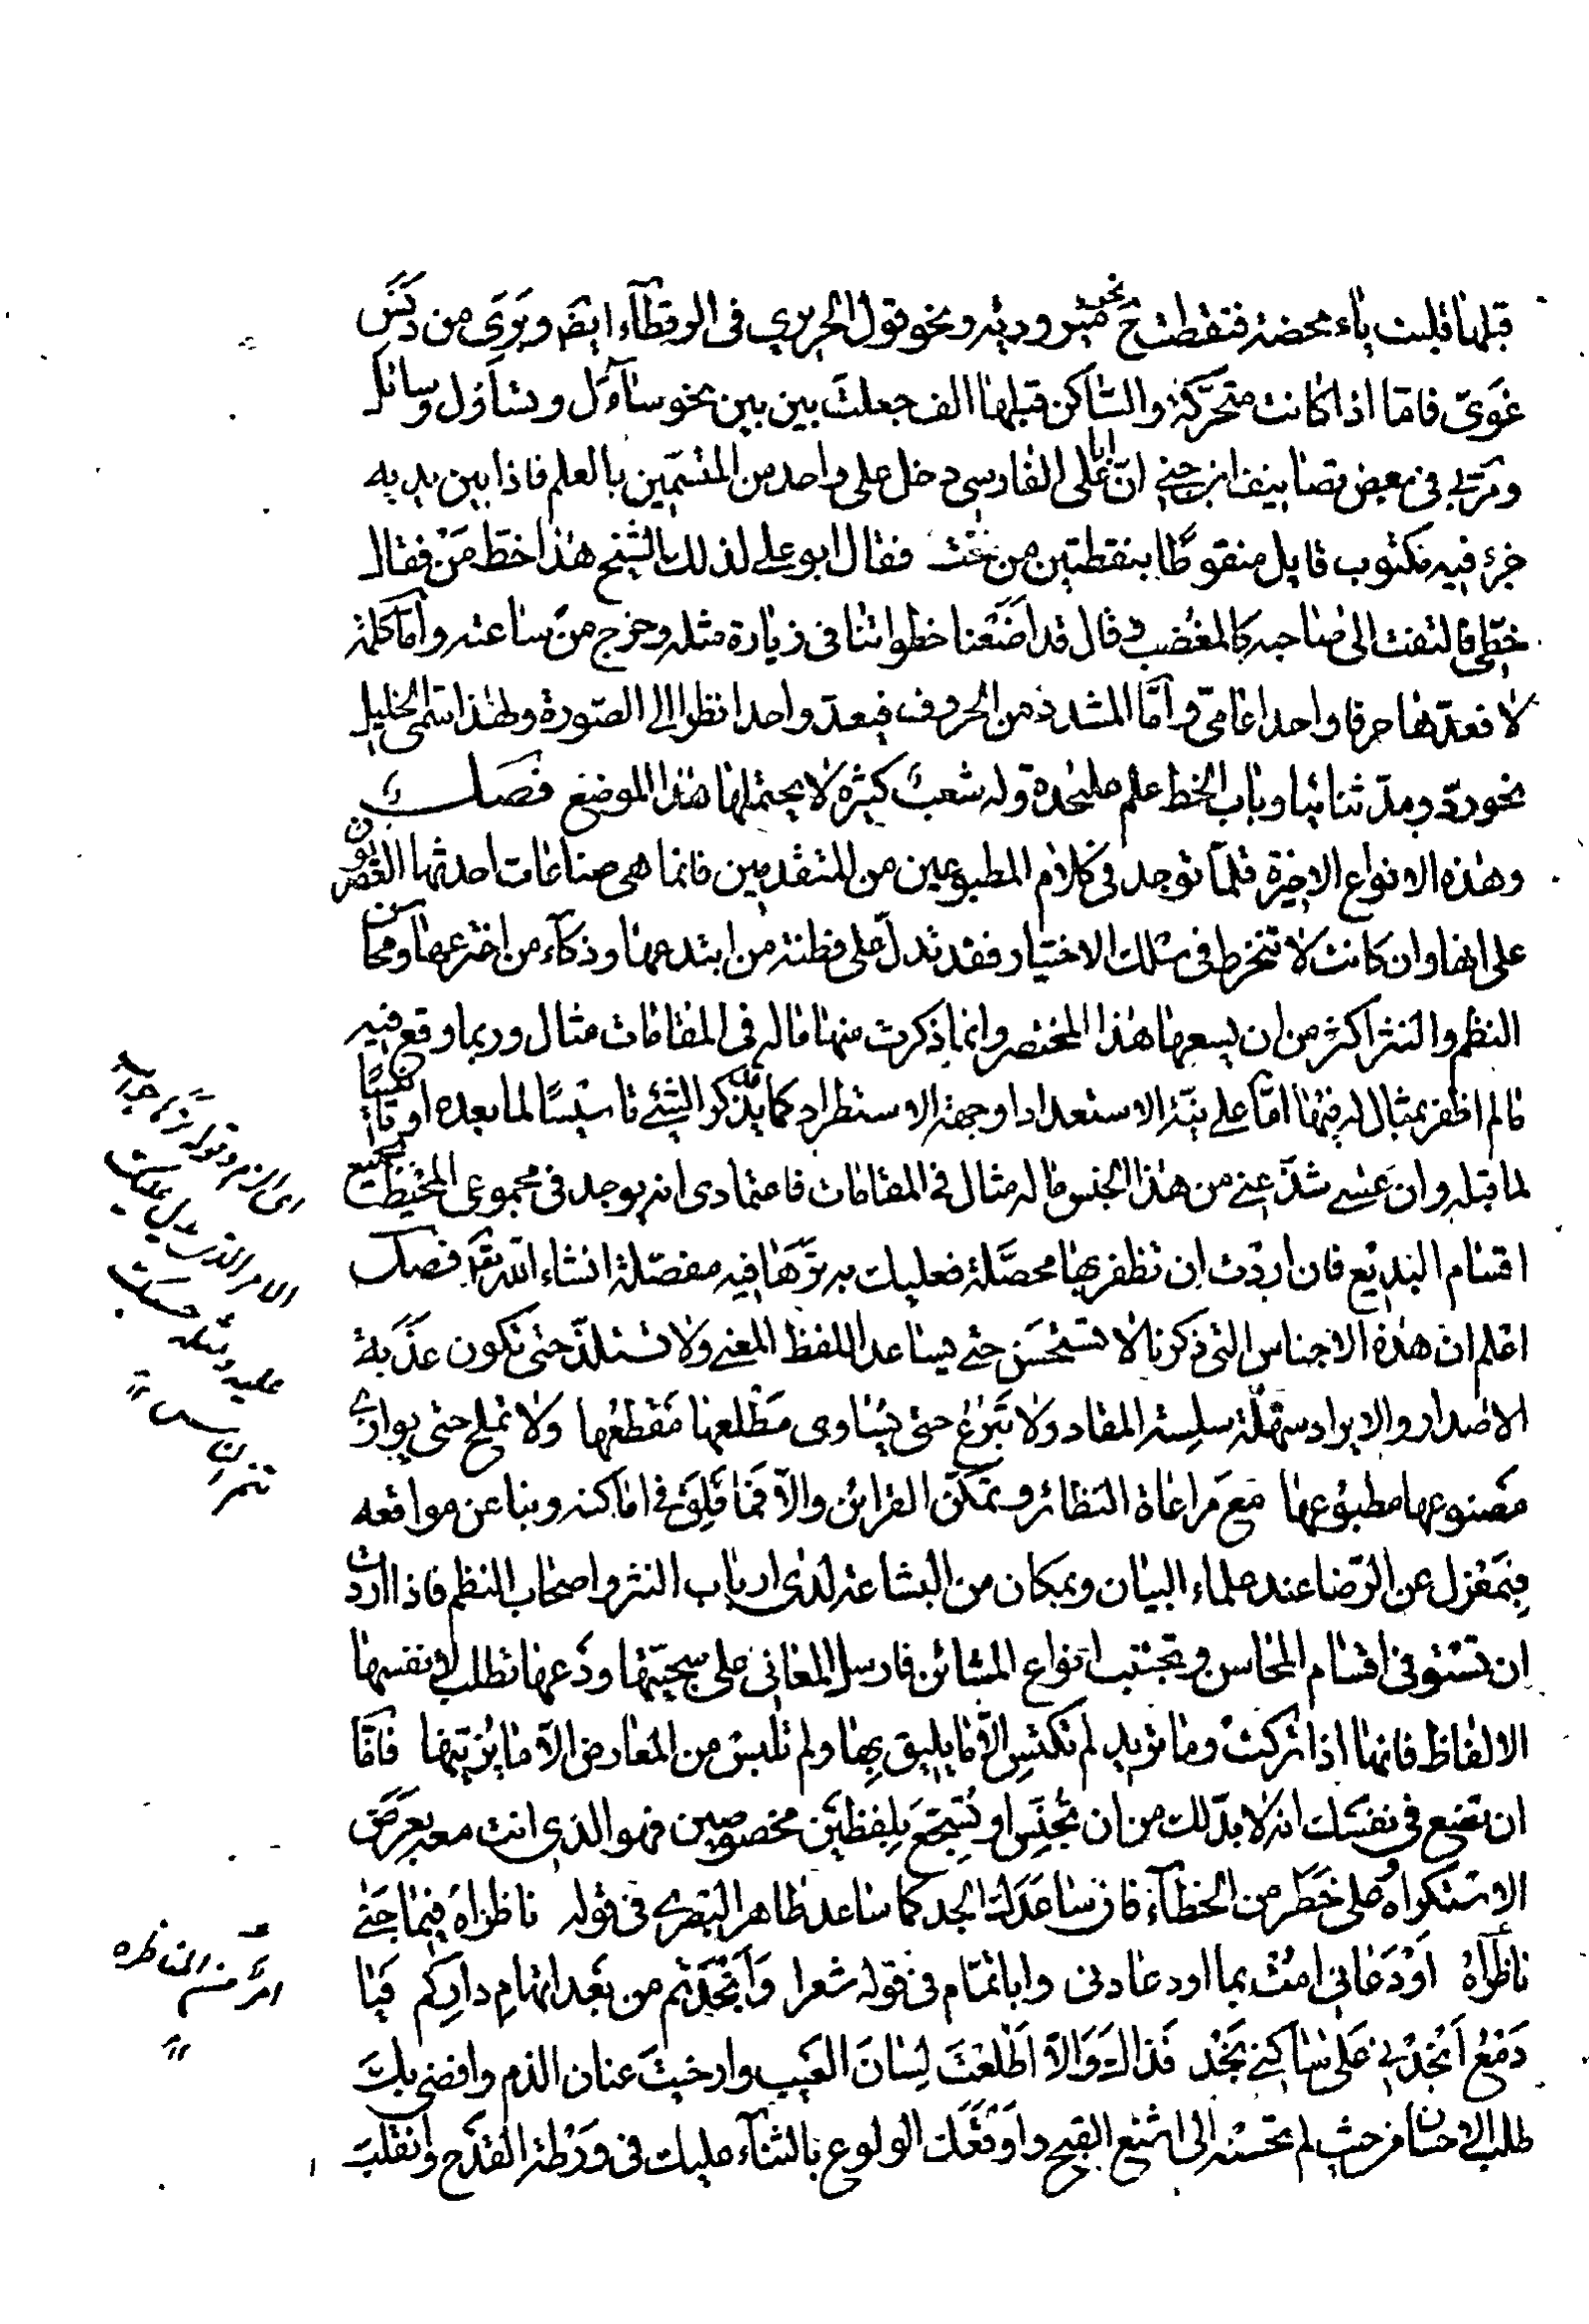 قبلها قلبت ياء محضة فنقطت ح نحو مير ودية ونحو قول الحريري فى الرقطاء ايضَ وبَرِىَ من دَنَسٍ
غَوِىّ فامّا اذا كانت متحرّكة والسّاكن قبلها الف جعلتَ بين بين نحو ساءَل وتساؤل وسائل
ومرّ بى فى بعض تصانيف ابن جنى انّ ابا على الفارسى دخل على واحد من المتسمّين بالعلم فاذا بين يديه
جزؤ فيه مكتوب قايل منقوطًا بنقطتين من تحت فقال ابو على لذلك الشيخ هذا خطّ مَنْ فقال
خطّى فالتفت الى صاحبه كالمغضب وقال قد اضَعْنا خطواتنا فى زيارة مثله وخرج من ساعته وامّا كلمة
لا فعدّها حرفا واحدا عامىّ وامّا المشدد من الحروف فيعدّ واحدا نظرا الى الصّورة ولهذا سمّى الخليل
نحو ردّ ومدّ ثنائيا وباب الخط علم عليحدة وله شعبٌ كثيره لا يحتملها هذا الموضع فصل
وهذه الانواع الاخيرة قلّما توجد فى كلام المطبوعين من المتقدمين فانما هى صناعات احدثها القصريون
على انها وان كانت لا تنخرط فى سلك الاختيار فقد تدلّ على فطنة من ابتدعها وذكاء من اخترعها ومحاسن
النظم والنثر اكثر من ان يسعها هذا المختصر وانما ذكرت منها ما له فى المقامات مثال وربما وقع فيه
ما لم اظفر بمثال له فيها امّا على نيّة الاستعداد او جهة الاستطراد كما يذكر الشئ تاسيسًا لما بعده او تاكيسًا
لما قبله وان عسى شذّ عنى من هذا الجنس ما له مثال فى المقامات فاعتمادى انه يوجد فى مجموعى المحيط بجميع
اقسام البديع فان اردْت ان تظفر بها محصَّلة فعليك به ترَهَا فيه مفصّلة انشاء الله تعَ فصل
اعلم ان هذه الاجناس التى ذكرنا لا تستحسَن حتى يساعد اللفظ المعنى ولا تستلذّ حتى تكون عذبة
الاصدار والايراد سهلة سلِسة المقاد ولا تَبْزُغ حتى يساوى مَطْلعها مَقْطعُها ولا تملح حتى يوازى
مصنوعها مطبوعها مع مراعاة النظائر وتمكّن القرائن والّا فما قَلِقَ فى اماكنه ونبا عن مواقعه
فبمَعْزل عن الرّضا عند علماء البيان وبمكان من البشاعة لدى ارباب النثر واصحاب النظم فاذا اردت
ان تستوفى اقسام المحاسن وتجتنب انواع المشائن فارسل المعانى على سجيّتها ودَعها تطلب لانفسها
الالفاظ فانها اذا تركت وما تريد لم تكتسِ الّا ما يليق بها ولم تلبس من المعارض الّا ما يزيّنها فامّا
ان تضع فى نفسك انه لا بدّ لك من ان تُجنِّس او تُسجِّع بلفظين مخصوصين فهو الذى انت معه بعَرَض
الاستكراه وعلى خَطَر من الخطاء فان ساعدك الجد كما ساعد ظاهر البصرى فى قوله ناظراه فيما جَنى
ناظراهُ اوْدَعانى امُتْ بما اودعانى وابا تمّام فى قوله شعرا وَانْجَدْتم من بعد اتهامِ دارِكم فيا
دَمْعُ انْجِدْنِى على ساكنى نَجْد فذاك وَالّا اطْلَعْتَ لِسَانَ العيب وارخيتَ عنان الذم وافضى بك
طلب الاحسان من حيث لم تحسنه الى اشنع القبح واوقعك الولوع بالثناء عليك فى ورطة القدح وانقلب
امرٌ من المناظره